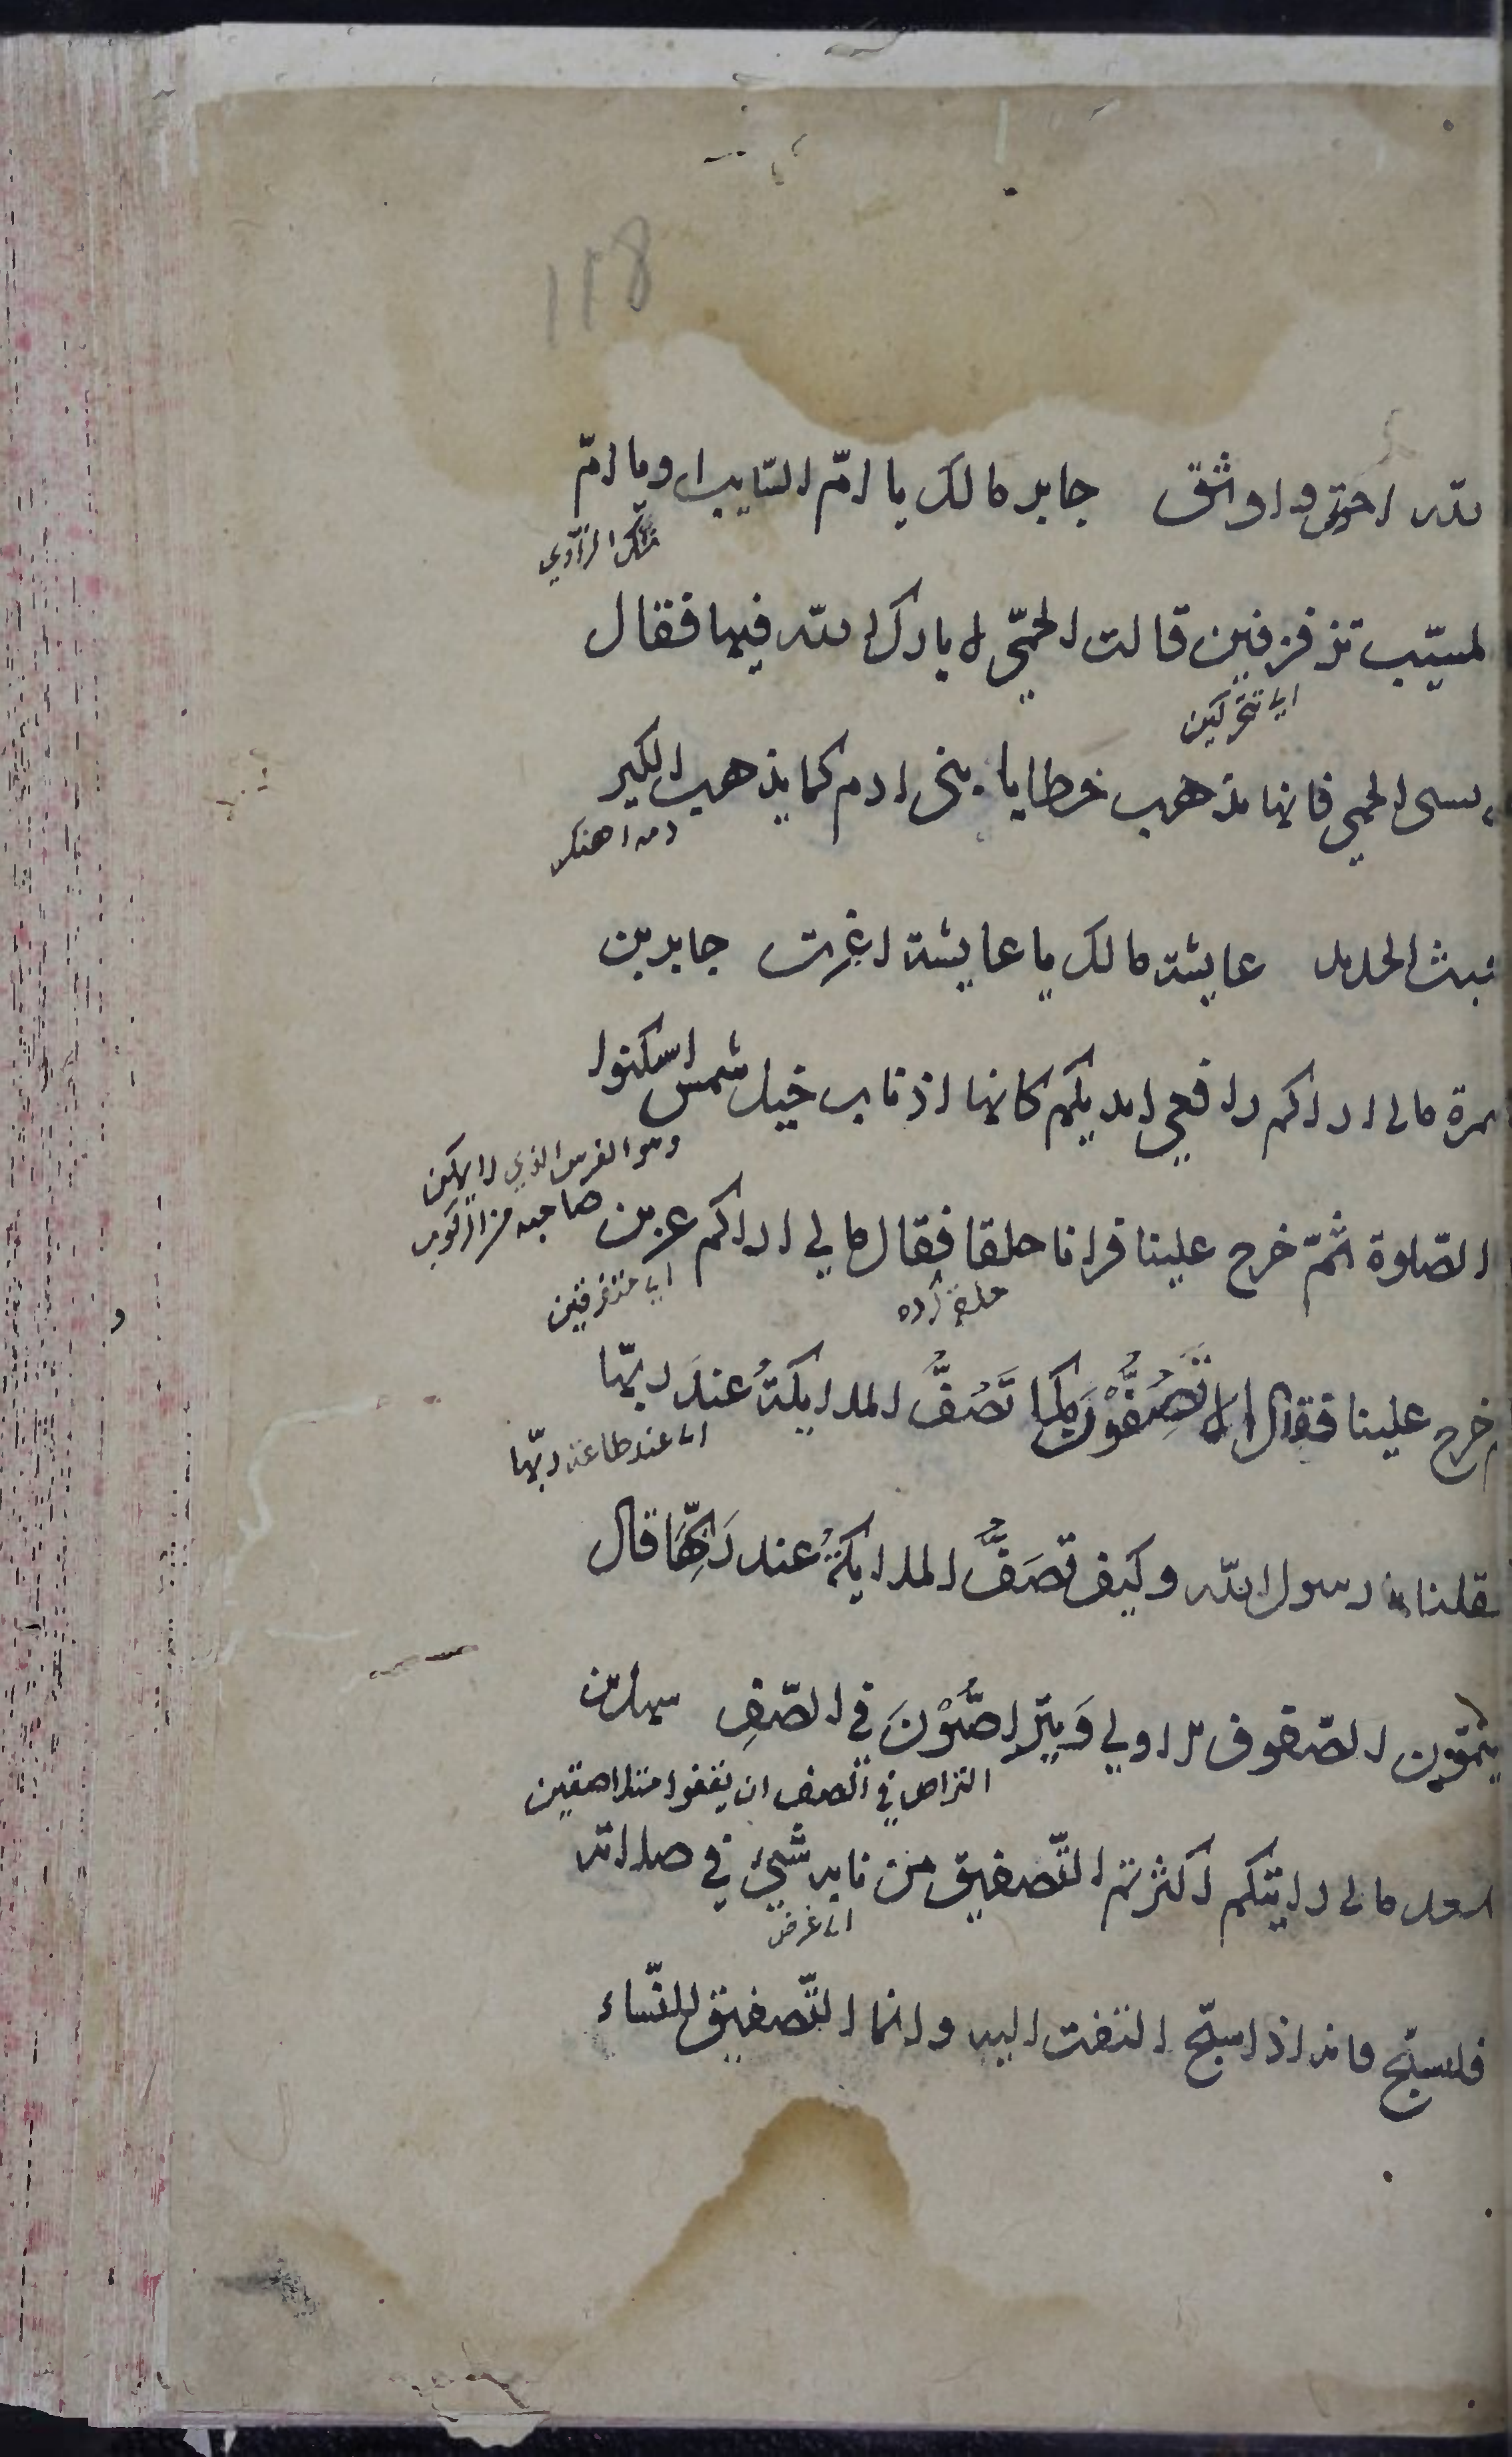 118
الله احق واوثق جابر مالك يا امّ السّايب او يا امّ
شكّ الرّاوي
لمسيّب تزفزفين قالت الحمّى لا بارك الله فيها فقال
اي تتحرّكين
تسبى الحمى فانها تذهب خطايا بنى ادم كما يذهب الكير
دمه اهنكر
خبث الحديد عايشة مالك يا عايشة اغرت جابر بن
سمرة مالى اراكم رافعي ايديكم كانها اذناب خيل شمس اسكنوا
وهو الفرس الذي لا يمكن
صاحبه من الركوب
الصّلوة ثمّ خرج علينا فرانا حلقا فقال مالي اراكم عزين
حلقه زده
اي متفرقين
خرج علينا فقال الا تَصُفُّوْنَ كما تَصُفُّ الملايكةُ عندَ ربّها
اى عند طاعة ربّها
فقلنا يا رسول الله وكيف تصَفُّ الملايكةُ عند رَبِّهَا قال
يتمّون الصّفوف الاولي وَيتَراصُّوْنَ في الصّفِ سهل بن
التراص في الصف ان يقفوا متلاصقين
سعد مالى رايتكم اكثرتم التّصفيق من نابه شيئ في صلاته
اى عرض
فليسبّح فانه اذا سبّح التفت اليه وانما التّصفيق للنّساء